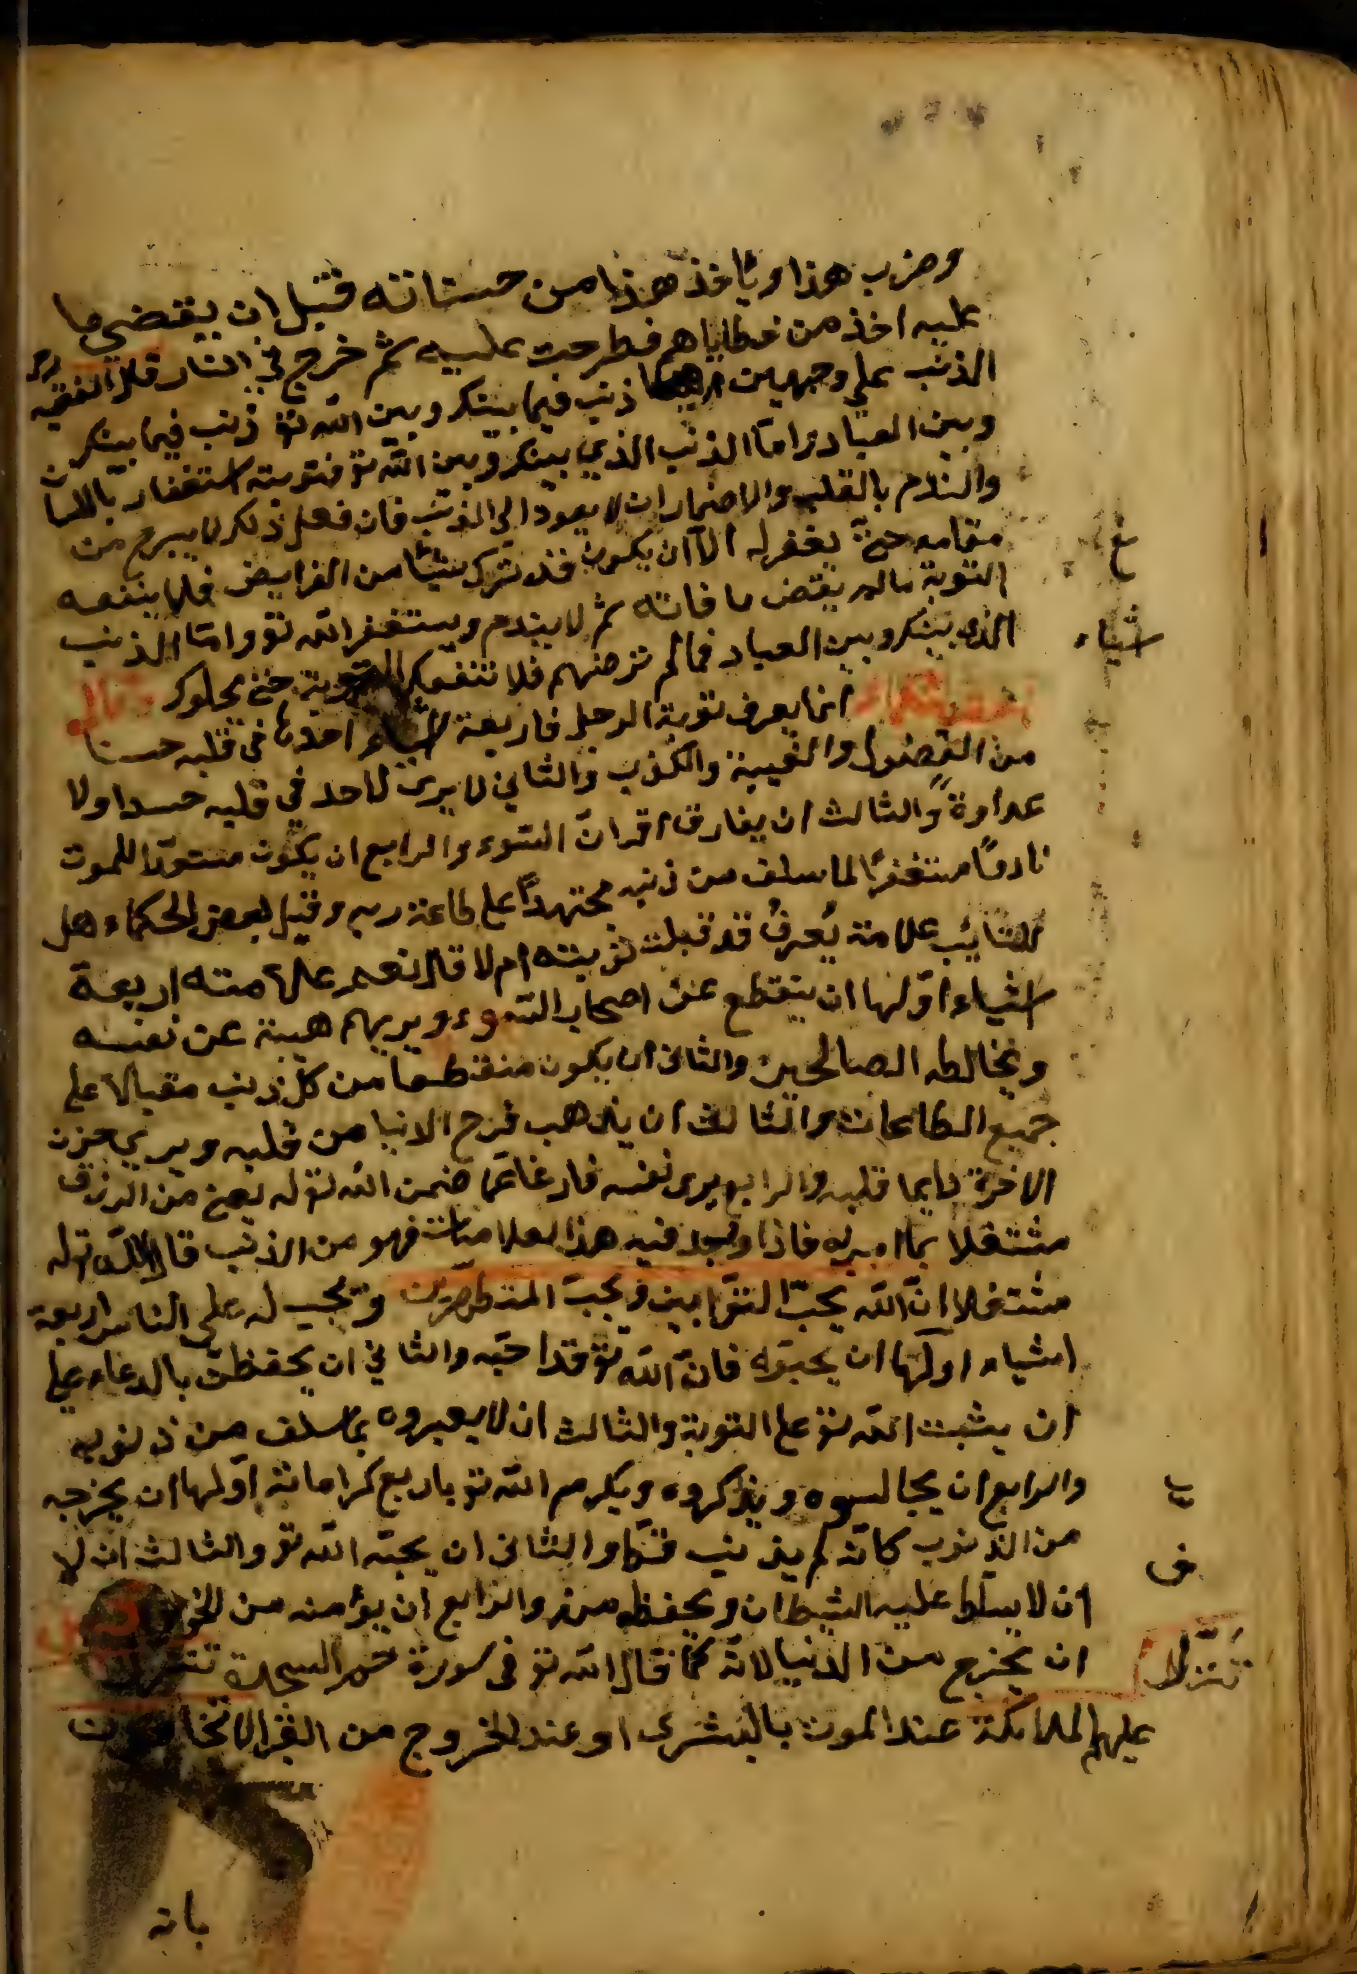 وضرب هذا وياخذ هذا من حسناته قبل ان يقتضي ما
عليه اخذ من خطاياهم فطرحت عليه ثم خرج في النار قال الفقيه
الذنب علي وجهين ذنب فيما بينكر وبين الله تو ذنب فيما بينكر
وبين العباد واما الذنب الذي بينكر وبين الله تو فتوبته استغفار باللسان
والندم بالقلب والاضمار ان لا يعود الي الذنب فان فعل ذلكر لا يبرح من
مقامه حتي يغفر له الا ان يكون قد ترك شيئا من الفرايض فلا ينفعه
التوبة ما لم يقض ما فاته ثم لا يندم ويستغفر الله تو واما الذنب
الذي بينكر وبين العباد فما لم ترضهم فلا تنفعكر التوبة حتي يحلوكر
انما يعرف توبة الرجل فاربعة اشياء احدها في قلبه حسنا
من الفضول والغيبة والكذب والثاني لا يرى لاحد في قلبه حسدا ولا
عداوة والثالث ان يفارق اقران السوء والرابع ان يكون مستعدا للموت
نادما مستغفرا لما سلف من ذنبه مجتهدا على طاعة ربه وقيل لبعض الحكماء هل
للتايب علامة يُعرفُ قد قبلت توبته ام لا قال نعم علامته اربعة
اشياء اولها ان ينقطع عن اصحاب السوء ويريهم هيبة عن نفسه
ويخالطه الصالحين والثاني ان يكون منقطعا من كل ذنب مقبالا علي
جميع الطاعات والثالث ان يذهب فرح الانيا من قلبه ويري حزن
الاخرة دايما قلبه والرابع يرى نفسه فارغا عما ضمن الله تو له يعني من الرزق
مشتغلا بما امر به فاذا وجد فيه هذا لعلامات فهو من الذنب قال الله تو له
مشتغلا ان الله يحبّ التوّابين ويحبّ المتطهّرين ويجب له علي الناس اربعة
اشياء اولها ان يحبوه فان الله تو قد احبّه والثاني ان يحفظن بالدعاء علي
ان يثبت الله تو علي التوبة والثالث ان لا يعيروه بما سلف من ذنوبه
والرابع ان يجالسوه ويذكروه ويكرم الله تو باربع كرامات اولها ان يخرجه
من الذنوب كانه لم يذنب قط والثاني ان يحبّه الله تو والثالث ان لا
ان لا يسلط عليه الشيطان ويحفظه منه والرابع ان يؤمنه من الخوف
ان يخرج من الدنيا لانه كما قال الله تو في سورة حم السجدة
عليهم الملايكة عند الموت بالبشرى او عند الخروج من القبر الا تخافوا
بانه
اشياء
تتنزّل